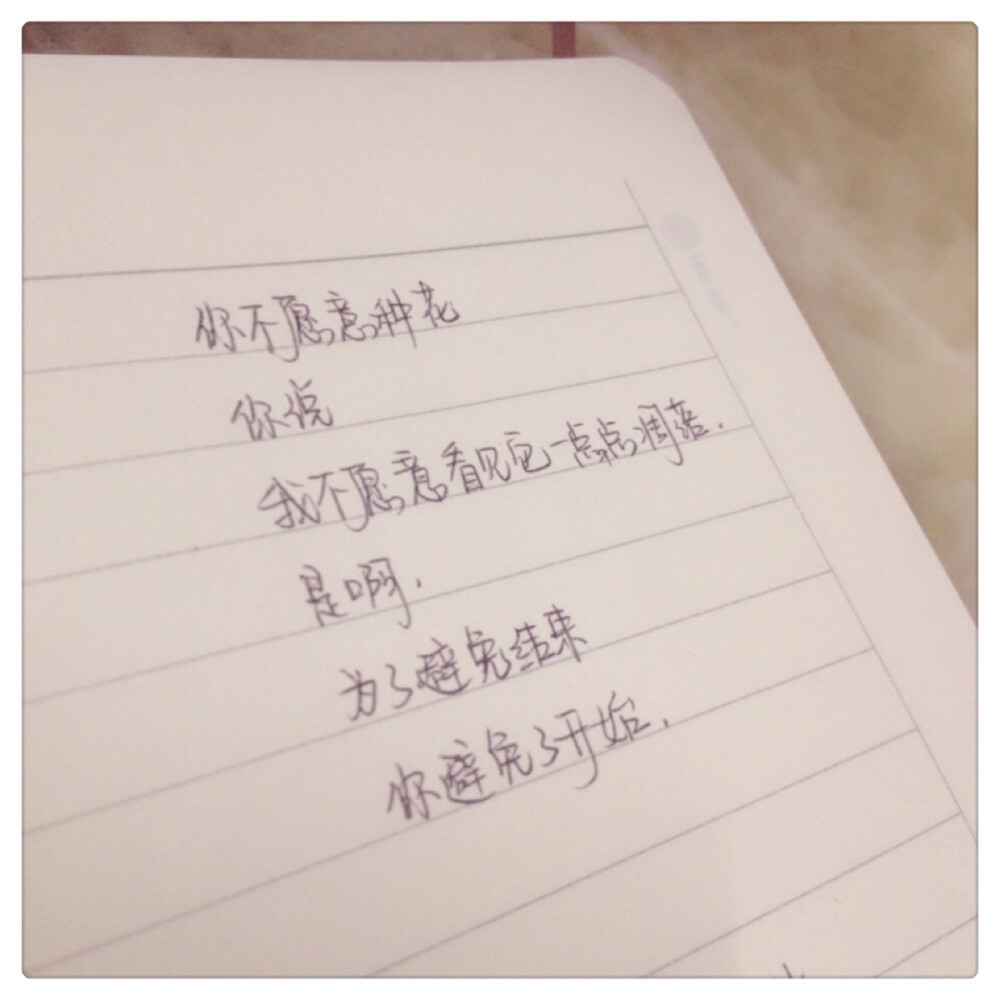 你不愿意种花
你说
我不愿意看见它一点点凋落.
是啊.
为了避免结束
你避免了开始.